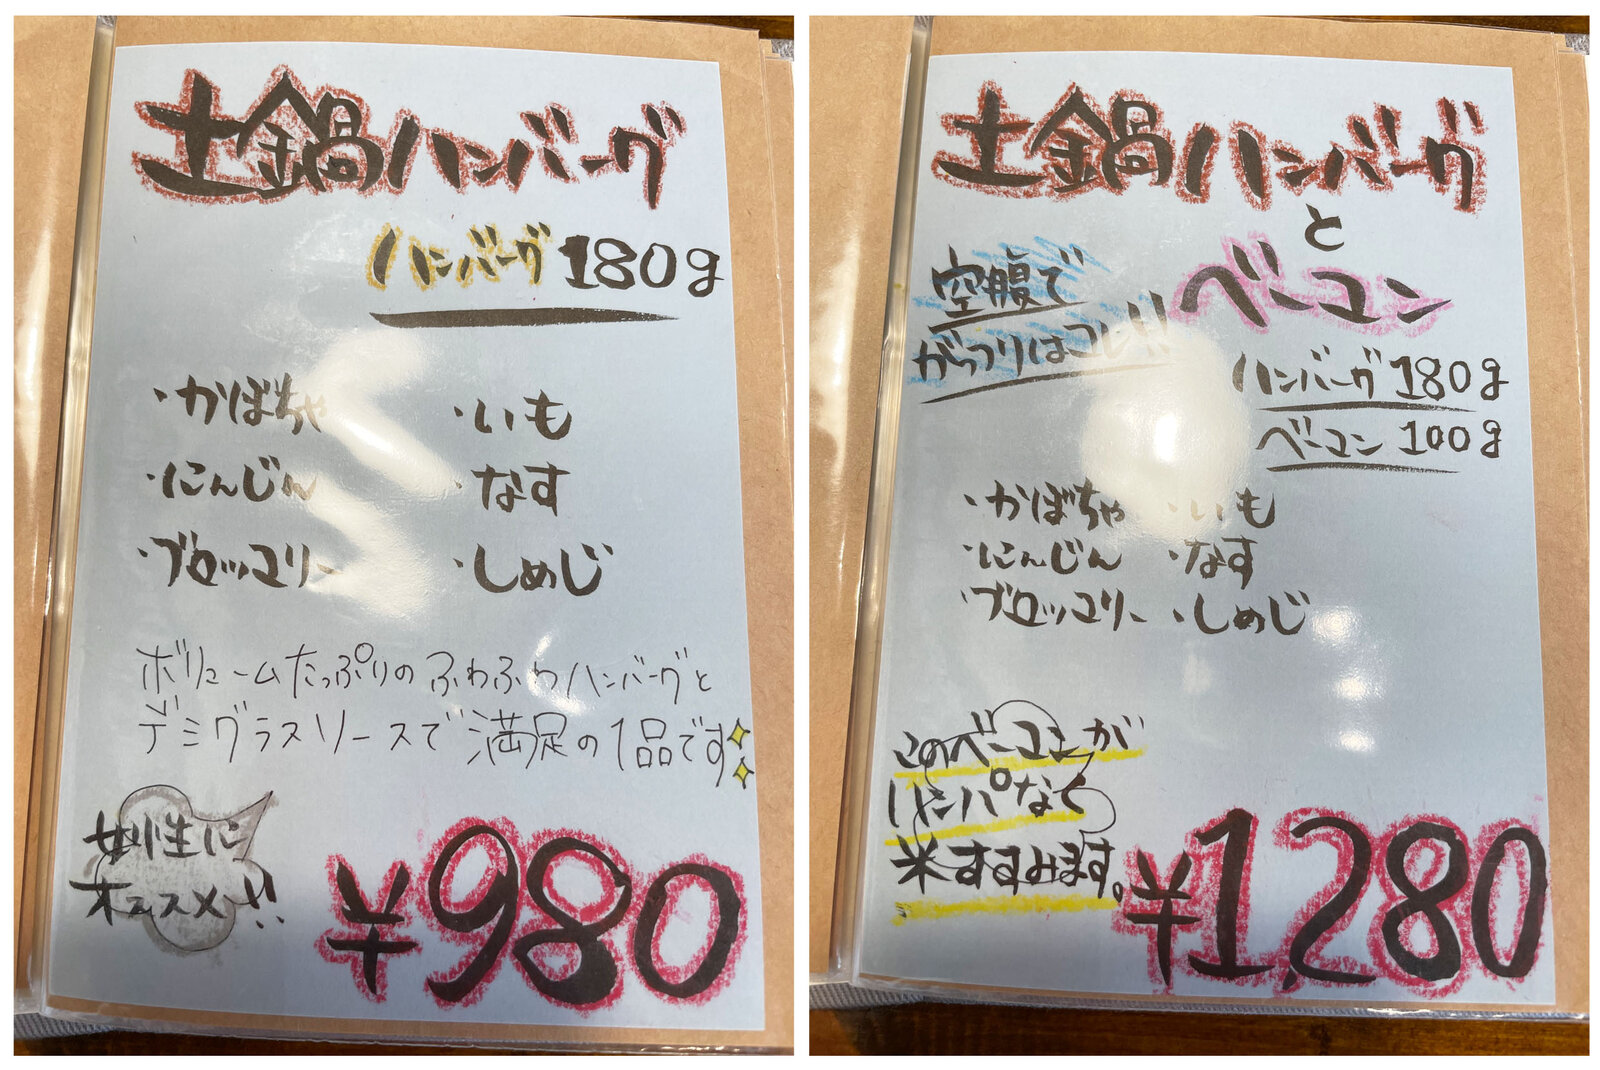 土鍋ハンバーグ
ハンバーグ 180g
・かぼちゃ ・いも
・にんじん ・なす
・ブロッコリー ・しめじ
ボリュームたっぷりのふわふわハンバーグと
デミグラスソースで満足の1品です
女性に
オススメ!!
¥980
土鍋ハンバーグ
と
ベーコン
空腹で
がっつりはコレ!!
ハンバーグ 180g
ベーコン 100g
・かぼちゃ ・いも
・にんじん ・なす
・ブロッコリー ・しめじ
このベーコンが
ハンパなく
米すすみます。
¥1,280